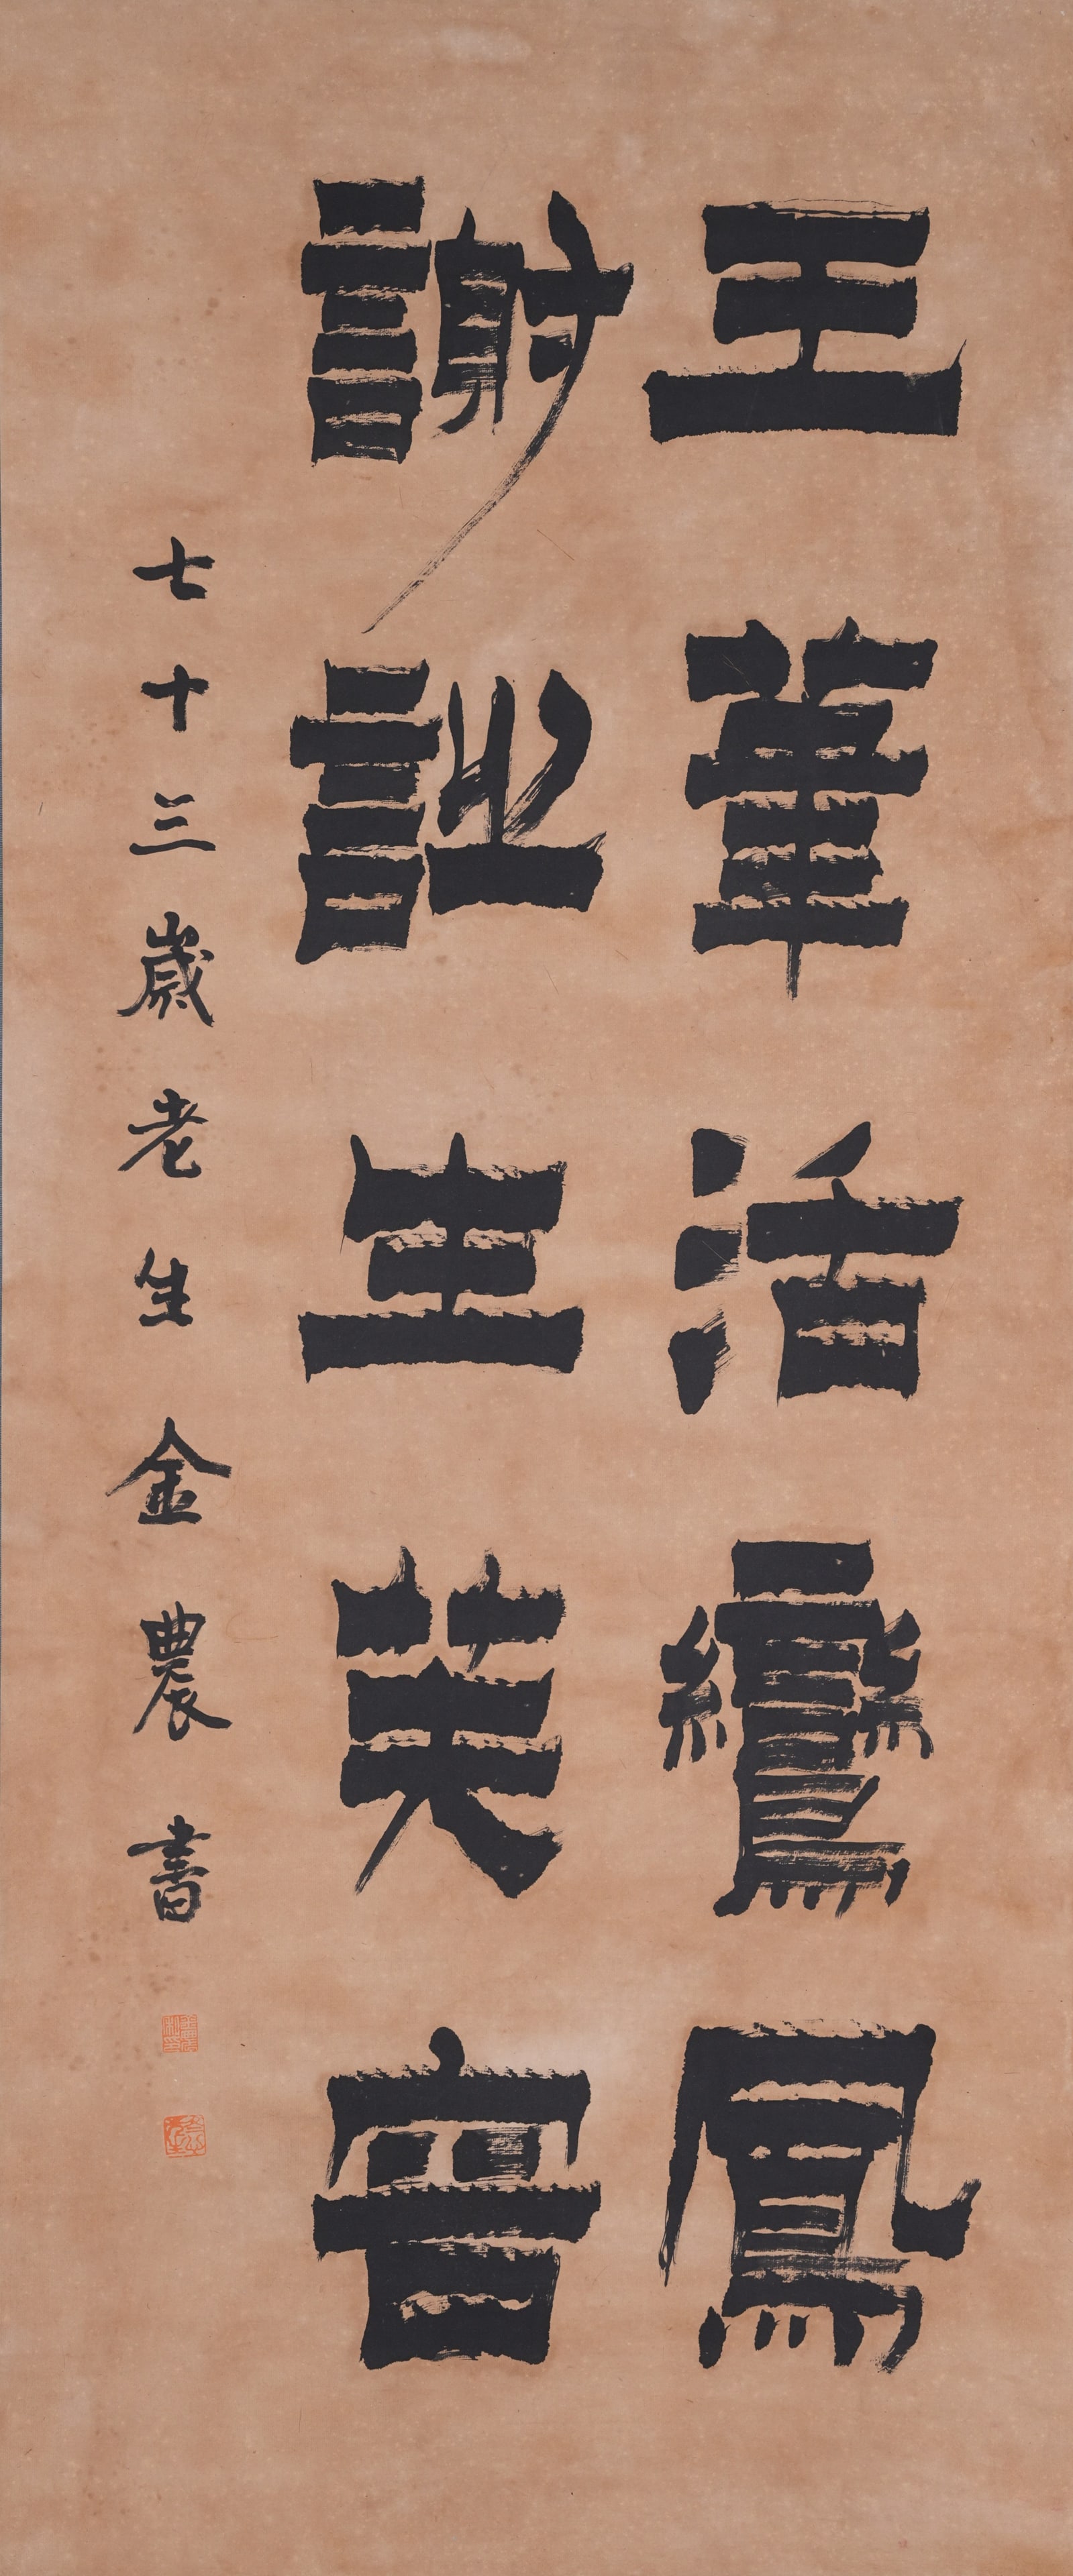 王筆活鸞鳳
謝詩生芙容
七十三歲老生金農書